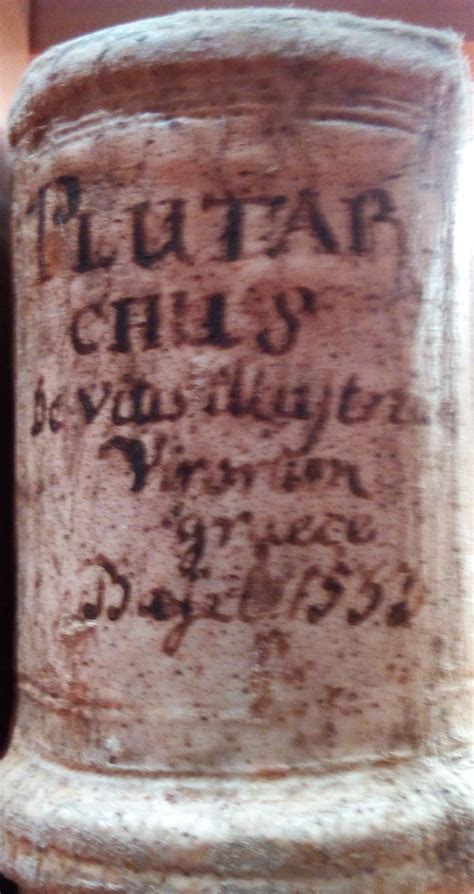 PLUTAR
CHUS
De vitis illustriu
Virorum
graece
Basil 1533